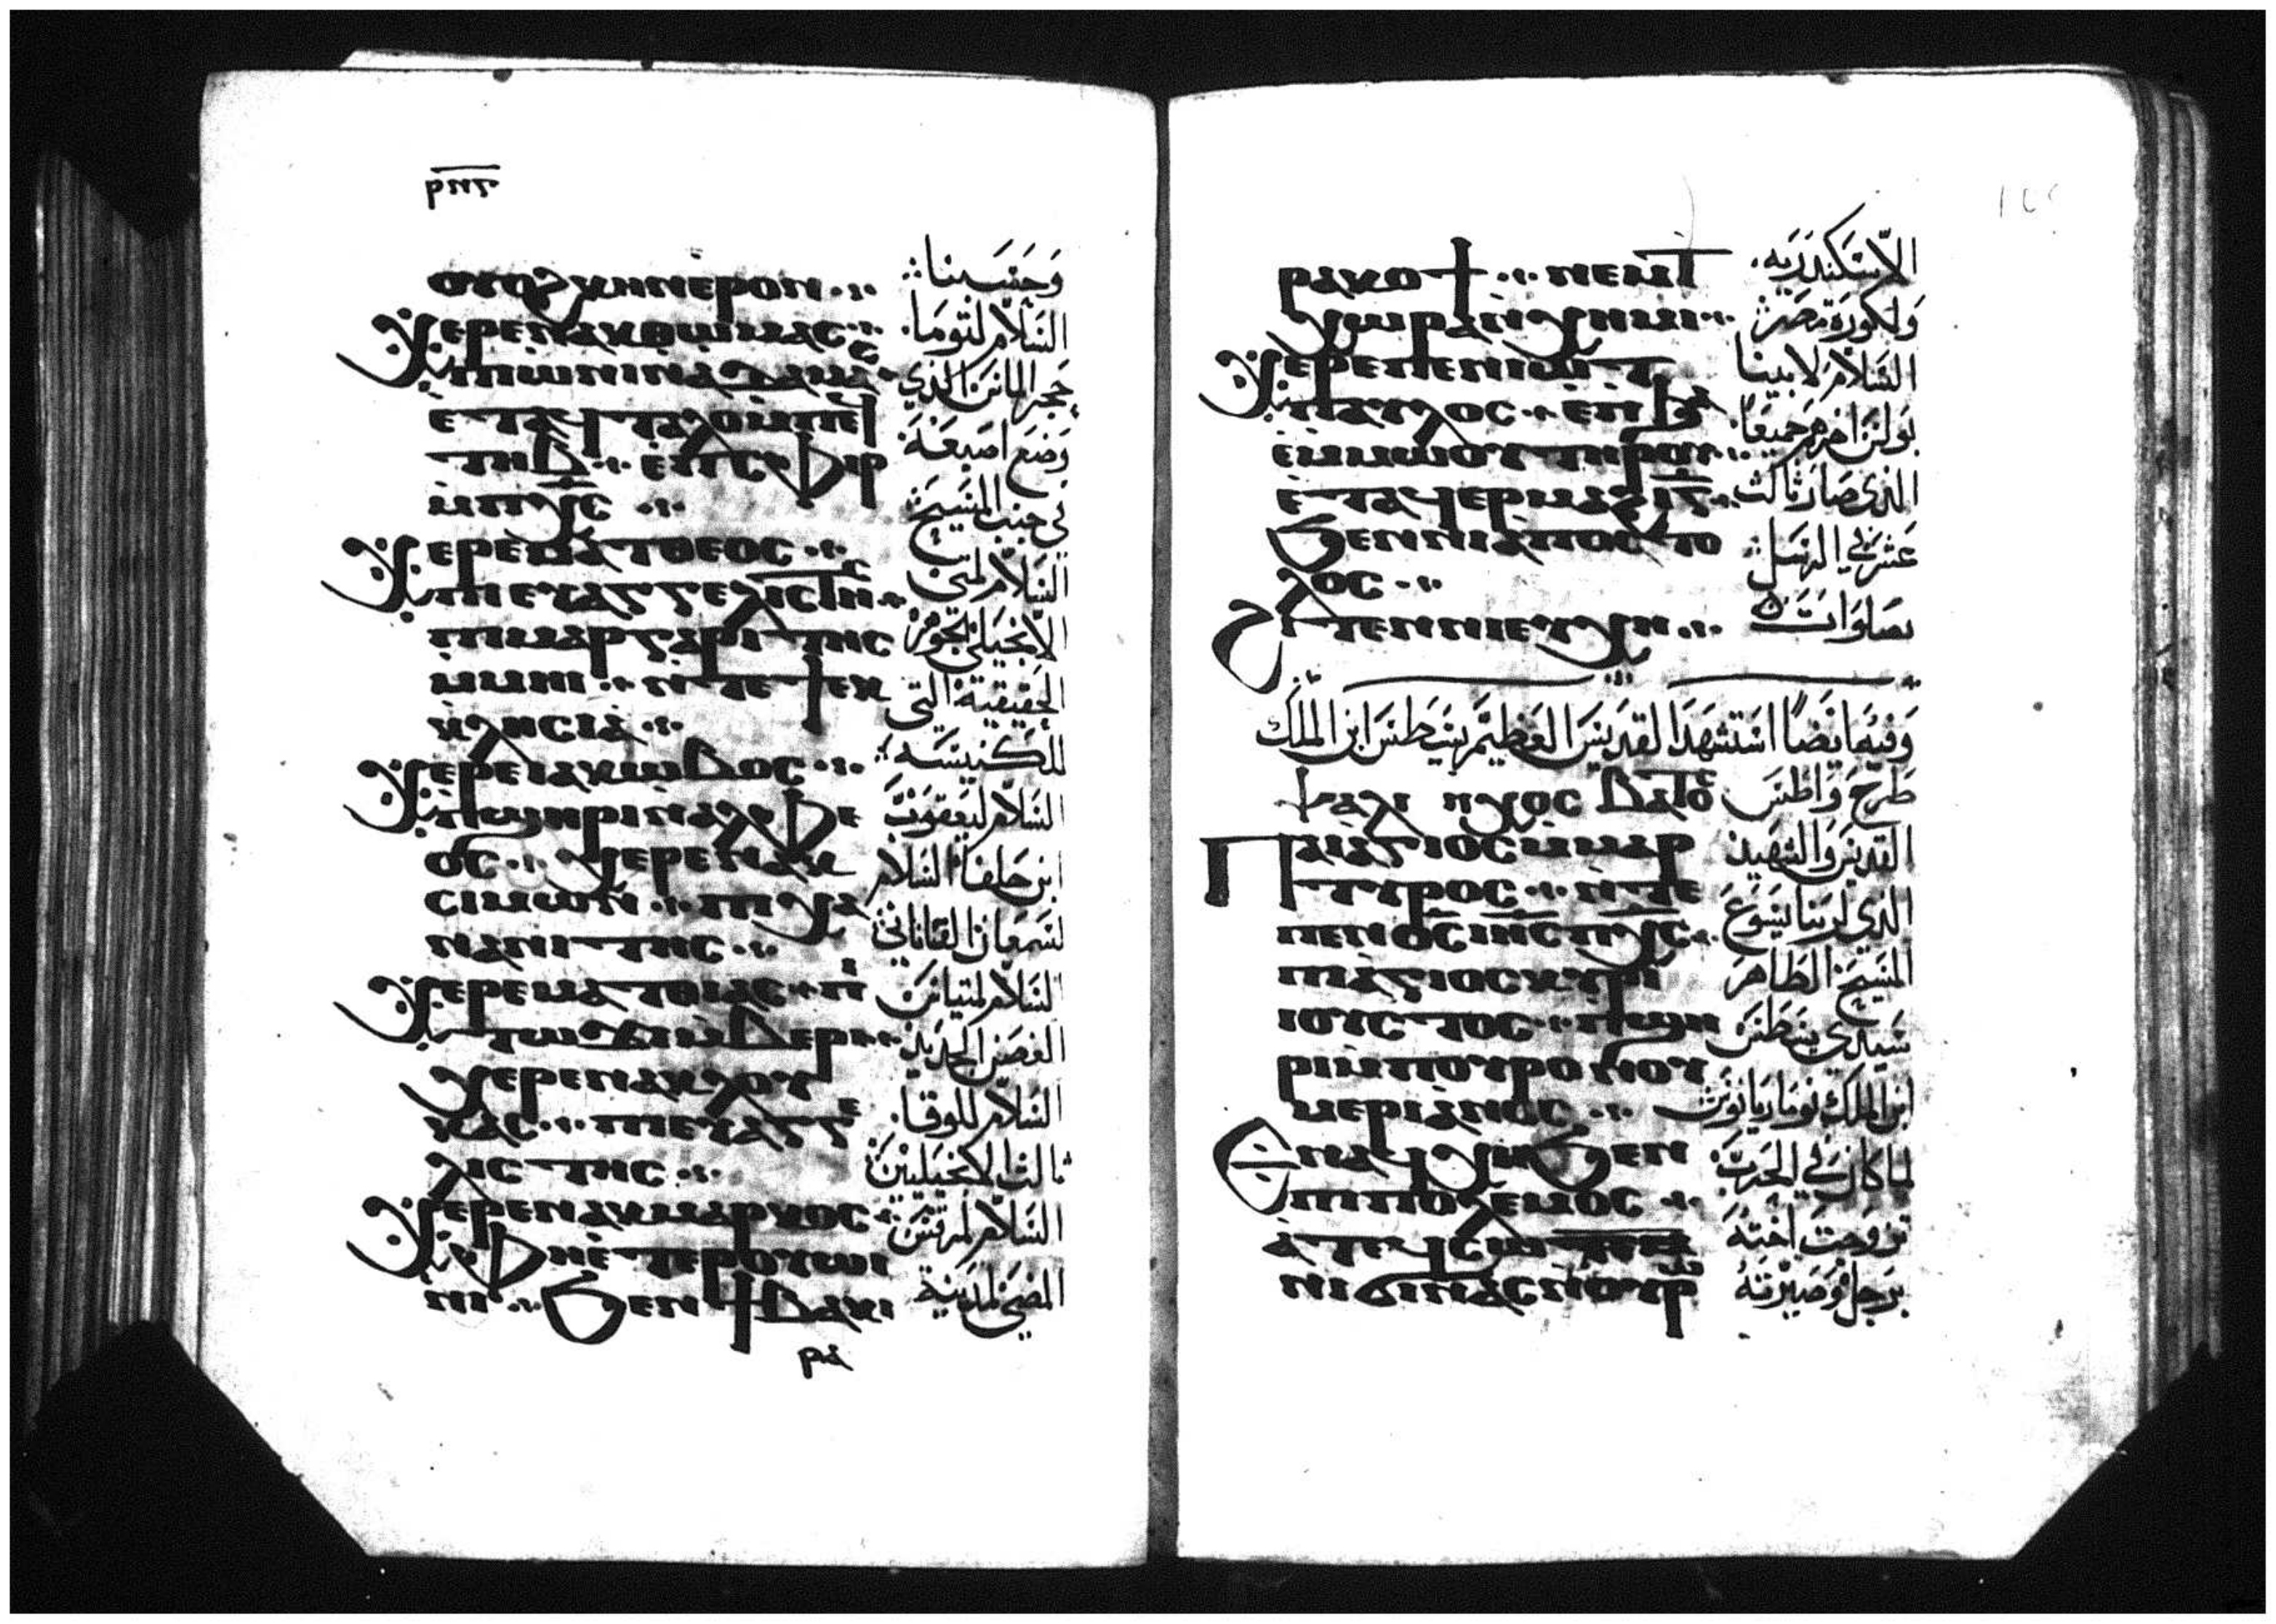 ⲣⲛⲍ
ⲭⲉⲣⲉⲛⲁⲕⲑⲱⲙⲁⲥ
ⲧⲏⲃ ⲉⲡⲥⲫⲓⲣ
ⲙⲡⲭⲥ
ⲭⲉⲣⲉⲙⲁⲧⲑⲉⲟⲥ
ⲡⲓⲉⲩⲁⲅⲅⲉⲗⲓⲥⲧⲏⲥ
ⲡⲓⲙⲁⲣⲅⲁⲣⲓⲧⲏⲥ
ⲙⲙⲏⲓ ⲛⲧⲉϯⲉⲕ
ⲕⲗⲏⲥⲓⲁ
ⲭⲉⲣⲉⲓⲁⲕⲱⲃⲟⲥ
ⲡϣⲏⲣⲓⲛⲁⲗⲫⲉ
ⲟⲥ ⲭⲉⲣⲉⲛⲁⲕ
ⲥⲓⲙⲱⲛ ⲡⲓⲭⲁ
ⲛⲁⲛⲓⲧⲏⲥ
ⲭⲉⲣⲉⲙⲁⲧⲑⲓⲁⲥ ⲡⲓ
ⲧⲱϫⲓⲙⲃⲉⲣⲓ
ⲭⲉⲣⲉⲛⲁⲕⲗⲟⲩ
ⲕⲁⲥ ⲡⲓⲉⲩⲁⲅⲅⲉ
ⲗⲓⲥⲧⲏⲥ
ⲭⲉⲣⲉⲛⲁⲕⲙⲁⲣⲕⲟⲥ
ⲫⲏⲉⲧⲉⲣⲟⲩⲱⲓ
ⲛⲓ ϧⲉⲛϯⲃⲁⲕⲓ
ⲣⲁ
السلام لتوما
حجر الماس الذي
وضع اصبعه
في جنب المسيح
السلام لمتى
الانجيلي الجوهر
الحقيقية التي
للكنيسه
السلام ليعقوب
ابن حلفا السلام
لسمعان القناناني
السلام لمتياس
الغصن الجديد
السلام للوقا
ثالث الانجيليين
السلام لمرقس
المضي لمدينة
ⲣⲁⲕⲟϯ ⲛⲉⲙϯ
ⲭⲱⲣⲁⲛⲭⲏⲙⲓ
ⲭⲉⲣⲉⲡⲉⲛⲓⲱⲧ
ⲡⲁⲩⲗⲟⲥ ⲉⲡϧⲁⲉ
ⲉⲙⲙⲱⲟⲩ ⲧⲏⲣⲟⲩ
ⲉⲧⲁϥⲉⲣⲙⲁϩⲓⲅ
ϧⲉⲛⲛⲓⲁⲡⲟⲥⲧⲟ
ⲗⲟⲥ
ϩⲓⲧⲉⲛⲛⲓⲉⲩⲭⲏ
الاسكندريه
ولكورة مصر
السلام لابينا
بولس اخرهم جميعا
الذي صار ثالث
عشر في الرسل
بصلوات
وفيه ايضا استشهد القديس العظيم بسطس ابن الملك
ⲯⲁⲗⲓ ⲏⲭⲟⲥ ⲃⲁⲧⲟⲥ
ⲡⲓⲁⲅⲓⲟⲥⲙⲙⲁⲣ
ⲧⲩⲣⲟⲥ ⲛⲧⲉ
ⲡⲉⲛⲟⲥ ⲓⲏⲥ ⲡⲭⲥ
ⲡⲓⲁⲅⲓⲟⲥⲕⲩⲣⲓ
ⲓⲟⲩⲥⲧⲟⲥ ⲡϣⲏ
ⲣⲓⲙⲡⲟⲩⲣⲟ ⲛⲟⲩ
ⲙⲉⲣⲓⲁⲛⲟⲥ
ⲉⲛⲁϥⲭⲏϧⲉⲛ
ⲡⲓⲡⲟⲗⲉⲙⲟⲥ
ⲛⲓϭⲓⲛⲁⲥⲛⲟⲩⲣⲟ
طرح واطس
القديس والشهيد
الذي لربنا يسوع
المسيح الطاهر
سيدي يسطس
ابن الملك نوماريانوس
لما كان في الحرب
تزوجت اخته
برجل وصيرته